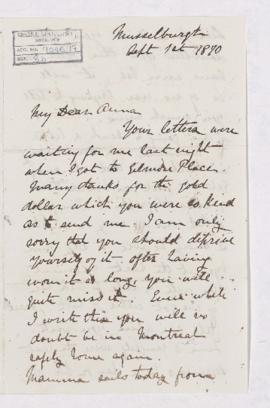 Musselburgh
Sept 1st 1890
My Dear Anna
Your letters were
waiting for me last night
when I got to Gilmore Place.
Many thanks for the gold
dollar which you were so kind
as to send me. I am only
sorry that you should deprive
yourself of it after having
worn it so long you will
quite miss it. Even while
I write this you will no
doubt be in Montreal
safely home again.
Mamma sails today from